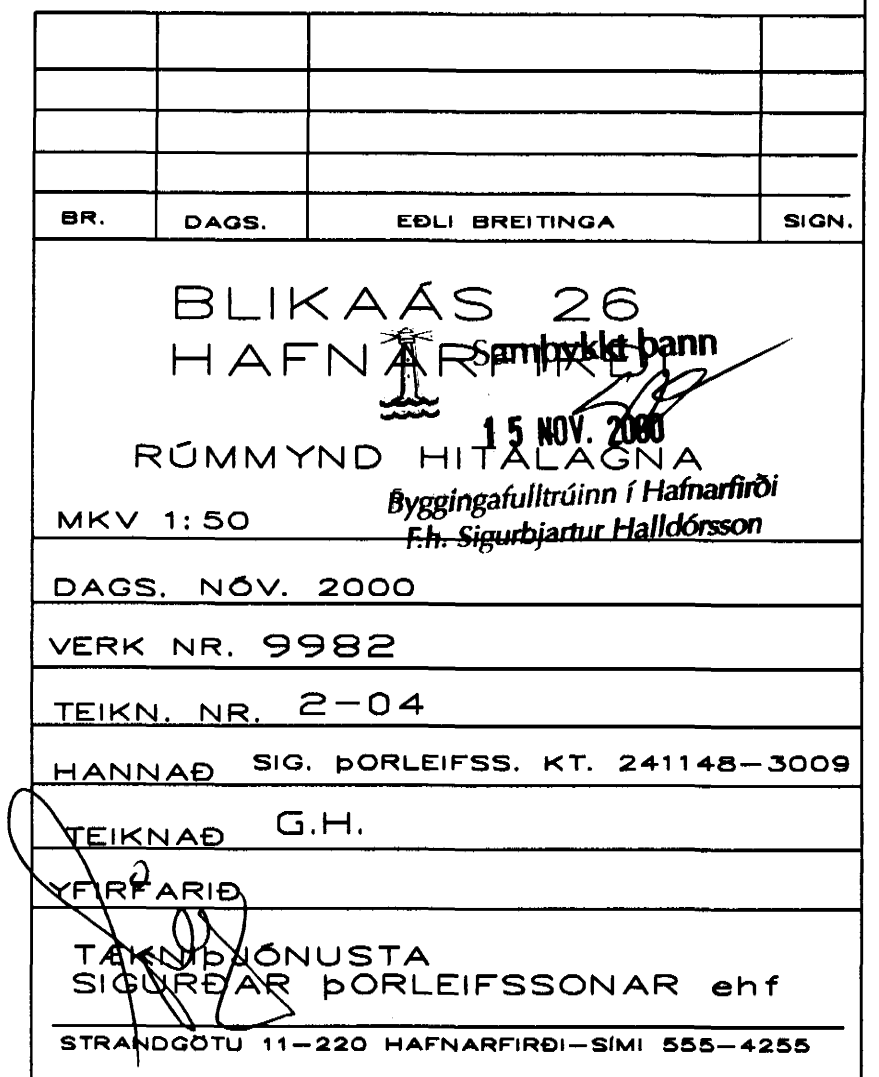 BR. DAGS. EÐLI BREITINGA SIGN.
BLIKAÁS 26
HAFNARFIRÐI
Samþykkt þann
15 NOV. 2000
RÚMMYND HITALAGNA
Byggingafulltrúinn í Hafnarfirði
F.h. Sigurbjartur Halldórsson
MKV 1:50
DAGS. NÓV. 2000
VERK NR. 9982
TEIKN. NR. 2-04
HANNAÐ SIG. ÞORLEIFSS. KT. 241148-3009
TEIKNAÐ G.H.
YFIRFARIÐ
TÆKNIÞJÓNUSTA
SIGURÐAR ÞORLEIFSSONAR ehf
STRANDGÖTU 11-220 HAFNARFIRÐI-SÍMI 555-4255